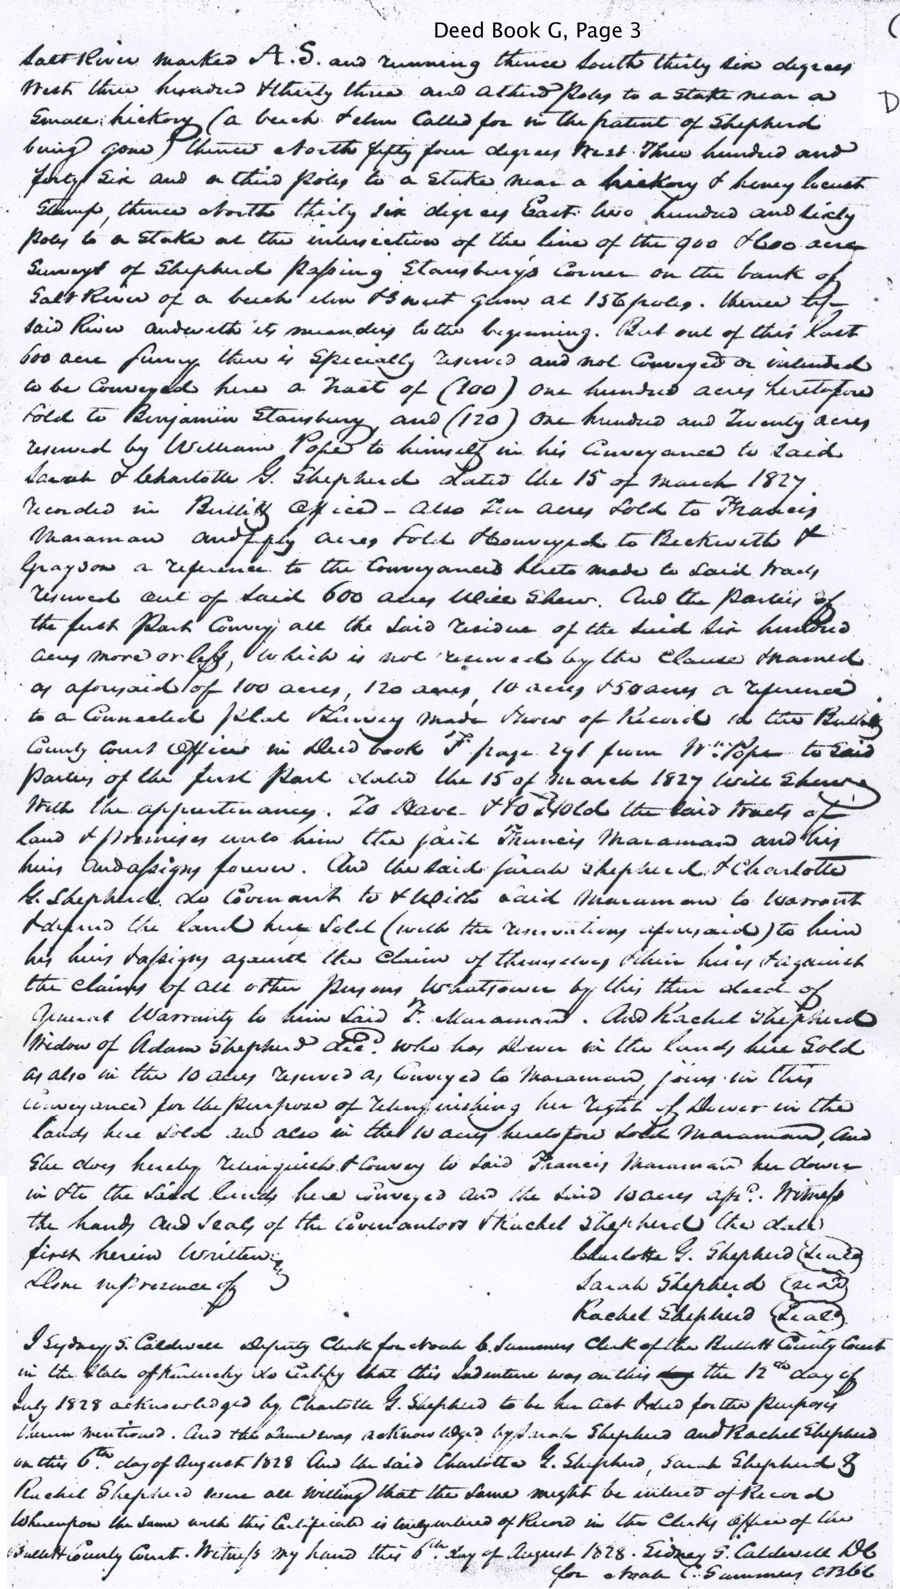 Deed Book G, Page 3
Salt River marked A. S. and running thence South thirty six degrees
West three hundred & thirty three and a third Poles to a Stake near a
Small hickory (a beech & elm Called for in the patent of Shepherd
being gone) thence North fifty four degrees West Three hundred and
forty Six and a third Poles to a Stake near a hickory & honey locust
Stump, thence North thirty six degrees East two hundred and sixty
Poles to a Stake at the intersection of the line of the 900 & 600 acre
Surveys of Shepherd Passing Stansbury's Corner on the bank of
Salt River of a beech elm & Sweet gum at 156 poles. thence up
Said River and with its meanders to the beginning. But out of this last
600 acre Survey there is Specially reserved and not Conveyed or intended
to be Conveyed here a Tract of (100) one hundred acres heretofore
Sold to Benjamin Stansbury and (120) One hundred and Twenty acres
reserved by William Pope to himself in his Conveyance to Said
Sarah & Charlotte G. Shepherd dated the 15 of March 1827
recorded in Bullitt Office - also Ten acres Sold to Francis
Maraman and fifty acres Sold & Conveyed to Beckwith &
Graydon a reference to the Conveyances hereto made to Said tracts
reserved out of Said 600 acres Will Shew. And the Parties of
the first Part Convey all the Said residue of the Said Six hundred
acres more or less, which is not reserved by the Clause & named
as aforesaid of 100 acres, 120 acres, 10 acres & 50 acres a reference
to a Connected Plat & Survey made & now of Record in the Bullitt
County Court Office in Deed book F page 291 from Wm. Pope to Said
Parties of the first Part dated the 15 of March 1827 Will Shew
With the appurtenances. To Have & To Hold the Said tracts of
land & premises unto him the Said Francis Maraman and his
heirs and assigns forever. And the Said Sarah Shepherd & Charlotte
G. Shepherd do Covenant to & With Said Maraman to Warrant
& defend the Land here Sold (with the reservations aforesaid) to him
his heirs & assigns against the Claim of themselves & their heirs & against
the claims of all other Persons Whatsoever by this their deed of
General Warranty to him Said F. Maraman. And Rachel Shepherd
Widow of Adam Shepherd decd. who has Dower in the lands here Sold
as also in the 10 acres reserved as Conveyed to Maraman, joins in this
Conveyance for the Purpose of relinquishing her right of Dower in the
lands here Sold and also in the 10 acres heretofore Sold Maraman, And
She does hereby relinquish & Convey to Said Francis Maraman her dower
in & to the Said lands here Conveyed and the Said 10 acres afsd. Witness
the hands and Seals of the Covenantors & Rachel Shepherd the date
first herein Written
Done in Presence of
Charlotte G. Shepherd (Seal)
Sarah Shepherd (Seal)
Rachel Shepherd (Seal)
I Sydney S. Caldwell Deputy Clerk for Noah C. Summers Clerk of the Bullitt County Court
in the State of Kentucky do Certify that this Indenture was on this day the 12th day of
July 1828 acknowledged by Charlotte G. Shepherd to be her act & deed for the Purposes
therein mentioned. And the Same was acknowledged by Sarah Shepherd and Rachel Shepherd
on this 6th. day of August 1828 And the Said Charlotte G. Shepherd, Sarah Shepherd &
Rachel Shepherd were all Willing that the Same might be entered of Record
Whereupon the Same with this Certificate is truly entered of Record in the Clerks Office of the
Bullitt County Court. Witness my hand this 6th. day of August 1828. Sidney S. Caldwell DC
for Noah C. Summers CBCC